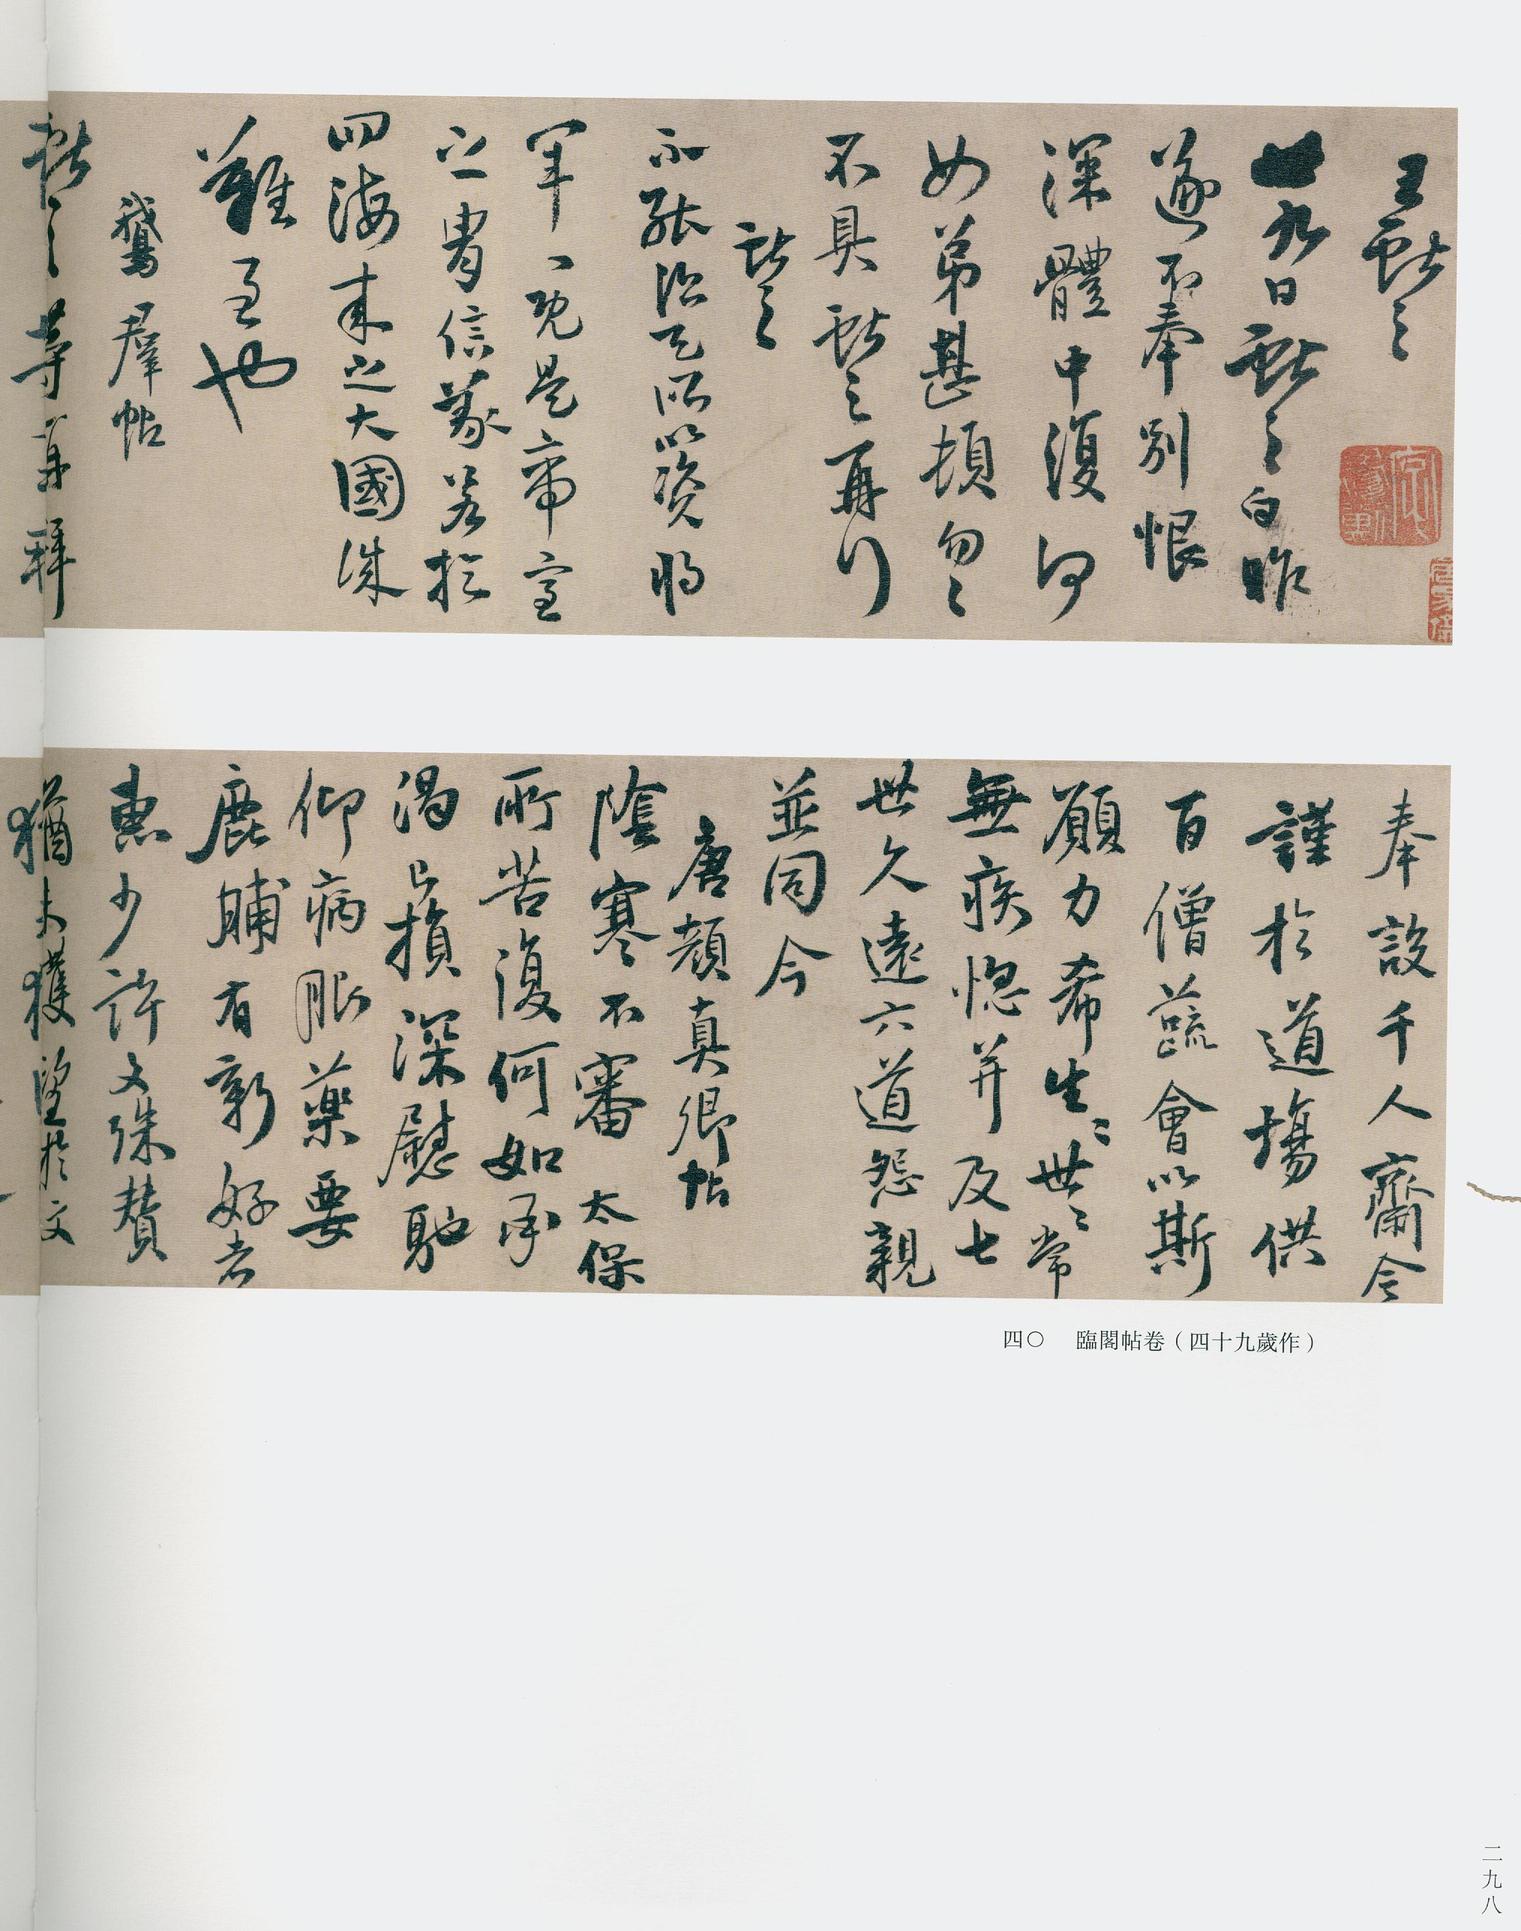 王獻之
廿九日獻之白昨
遂不奉別恨
深體中復何
如弟甚頓匆〻
不具獻之再行
獻之
能 所以資將
軍一既是帝室
之胄信義著於
四海 之大國誅
難 也
鵞羣帖
獻之等再拜
奉設千人齋今
謹於道場供
百僧蔬會以斯
願力希生〻世〻常
無疾惱并及七
世久遠六道怨親
並同今
唐顏真卿帖
陰寒不審太保
所苦復何如承
渴已損深慰馳
仰病服藥要
鹿脯有新好者
惠少許文殊贊
猶未獲望於文
四〇 臨閣帖卷（四十九歲作）
二九八